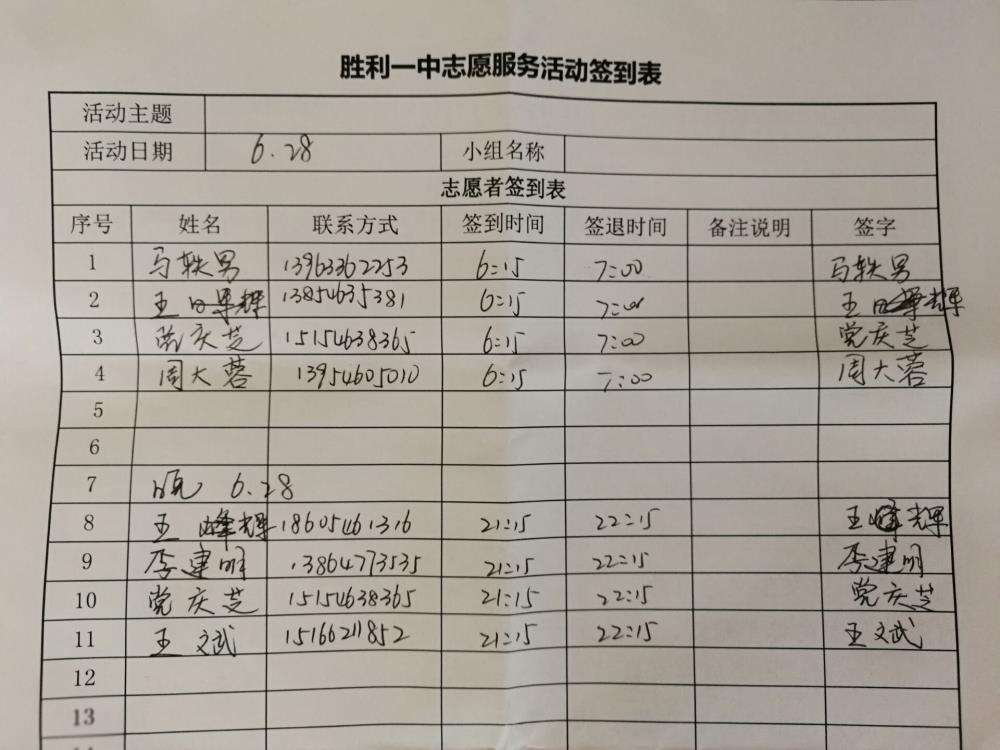 胜利一中志愿服务活动签到表
活动主题
活动日期 6.28 小组名称
志愿者签到表
序号 姓名 联系方式 签到时间 签退时间 备注说明 签字
1 马轶男 13963362253 6:15 7:00 马轶男
2 王 辉 13854635381 6:15 7:00 王 辉
3 党庆芝 15154638365 6:15 7:00 党庆芝
4 周大蓉 13954605010 6:15 7:00 周大蓉
5
6
7 晚 6.28
8 王峰辉 18605461316 21:15 22:15 王峰辉
9 李建明 13864773535 21:15 22:15 李建明
10 党庆芝 15154638365 21:15 22:15 党庆芝
11 王文武 15166211852 21:15 22:15 王文武
12
13